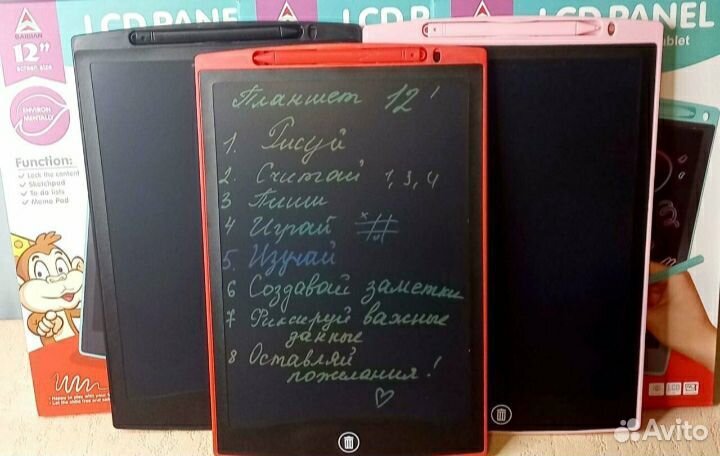 LCD PANEL
DAIRIAN
12"
screen size
ENVIRON
MENTALLY
Function:
• Lock the content
• Sketchpad
• To do lists
• Memo Pad
Планшет 12'
1. Рисуй
2. Считай 1,3,4
3 Пиши
4 Играй
5. Изучай
6 Создавай заметки
7 Фиксируй важные
данные
8 Оставляй
пожелания!
LCD PANEL
LCD
Avito